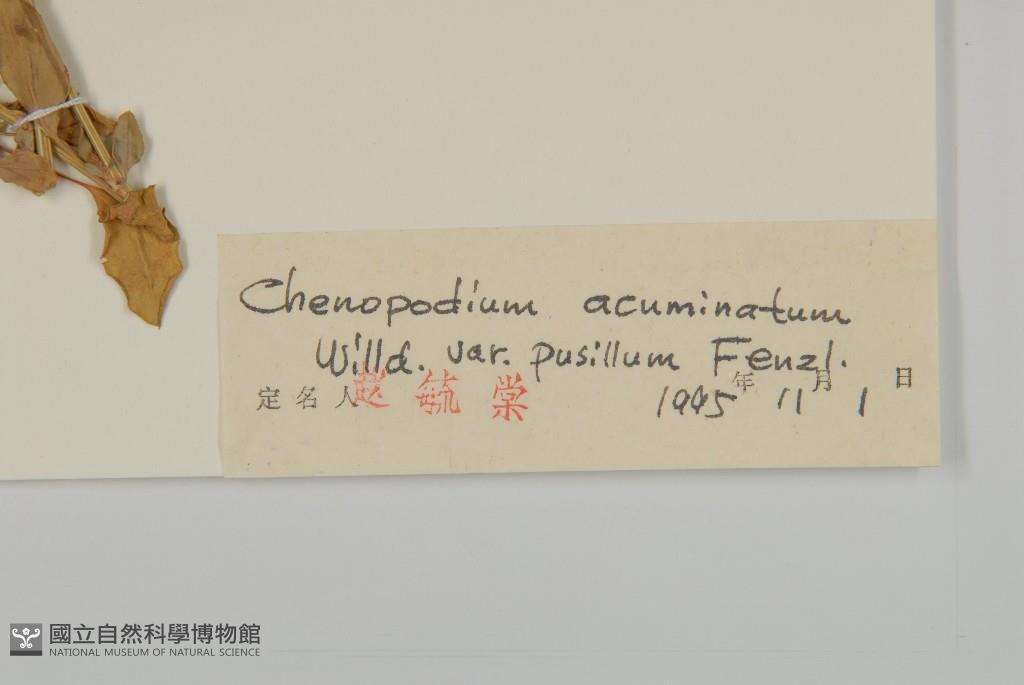 Chenopodium acuminatum
Willd. var. pusillum Fenzl.
定名人 赵毓棠 1995年 11月 1日
國立自然科學博物館
NATIONAL MUSEUM OF NATURAL SCIENCE